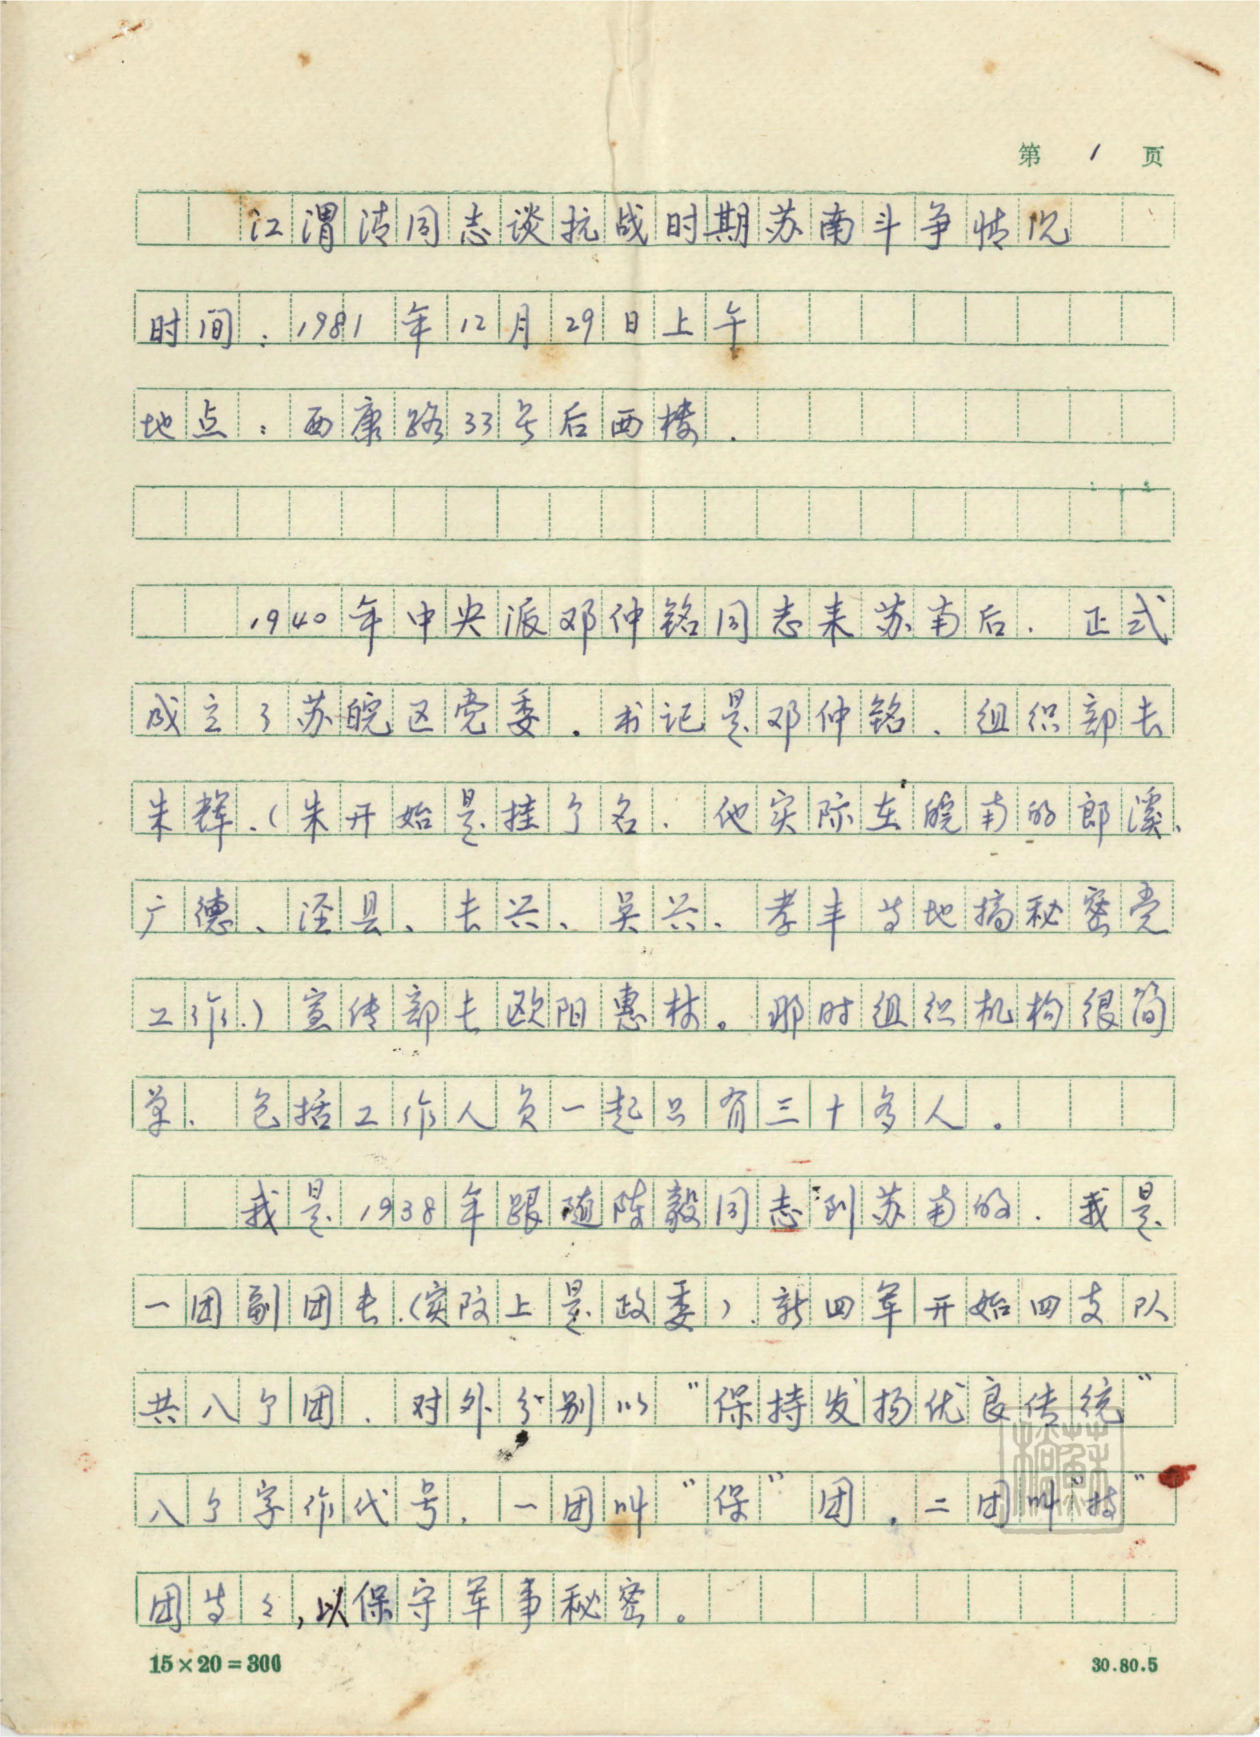 第 1 页
江渭清同志谈抗战时期苏南斗争情况
时间：1981年12月29日上午
地点：西康路33号后西楼.
1940年中央派邓仲铭同志来苏南后.正式
成立了苏皖区党委.书记是邓仲铭、组织部长
朱辉、（朱开始是挂了名.他实际在皖南的郎溪、
广德、泾县、长兴、吴兴、孝丰等地搞秘密党
工作.）宣传部长欧阳惠林。那时组织机构很简
单、包括工作人员一起只有三十多人。
我是1938年跟随陈毅同志到苏南的.我是
一团副团长.（实际上是政委）.新四军开始四支队
共八个团、对外分别以“保持发扬优良传统”
八个字作代号，一团叫“保”团，二团叫“持”
团等等,以保守军事秘密。
15×20=300
30.80.5